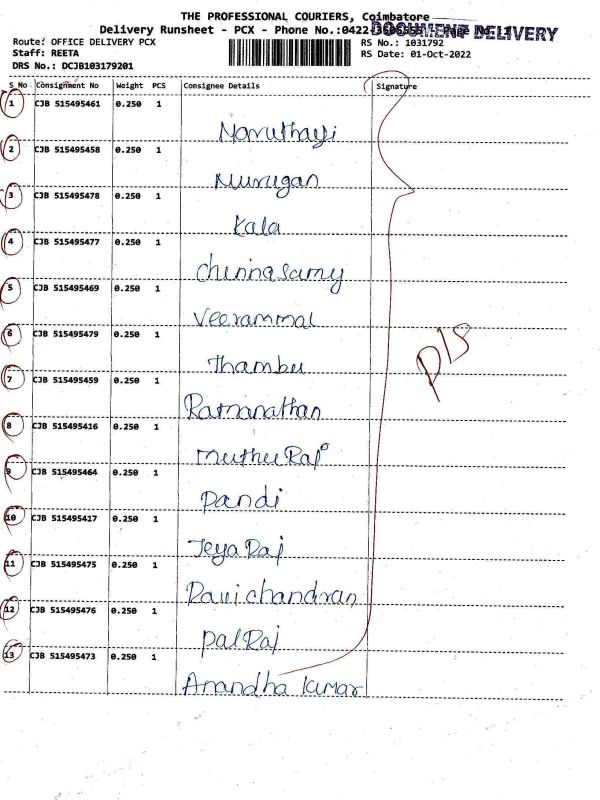 THE PROFESSIONAL COURIERS, Coimbatore
Delivery Runsheet - PCX - Phone No.:0422-
DOCUMENT DELIVERY
Route: OFFICE DELIVERY PCX
RS No.: 1031792
Staff: REETA
RS Date: 01-Oct-2022
DRS No.: DCJB103179201
S No Consignment No Weight PCS Consignee Details Signature
1 CJB 515495461 0.250 1
Maruthayi
2 CJB 515495458 0.250 1
Murugan
3 CJB 515495478 0.250 1
Kala
4 CJB 515495477 0.250 1
Chinnasamy
5 CJB 515495469 0.250 1
Veerammal
6 CJB 515495479 0.250 1
Thambu
7 CJB 515495459 0.250 1
Ramanathan
8 CJB 515495416 0.250 1
Muthu Raj
9 CJB 515495464 0.250 1
Pandi
10 CJB 515495417 0.250 1
Jeya Raj
11 CJB 515495475 0.250 1
Ravichandran
12 CJB 515495476 0.250 1
Pal Raj
13 CJB 515495473 0.250 1
Anandha Kumar